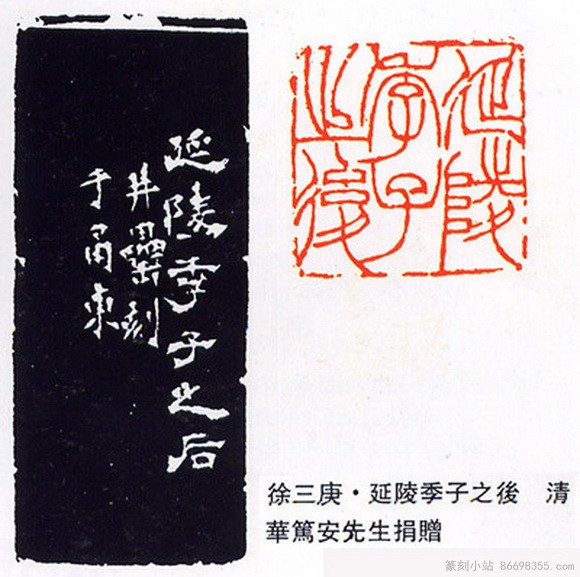 延陵季子之后
井罍刻
于甬東
延陵
季子
之後
徐三庚·延陵季子之後 清
華篤安先生捐贈
篆刻小站 86698355.com